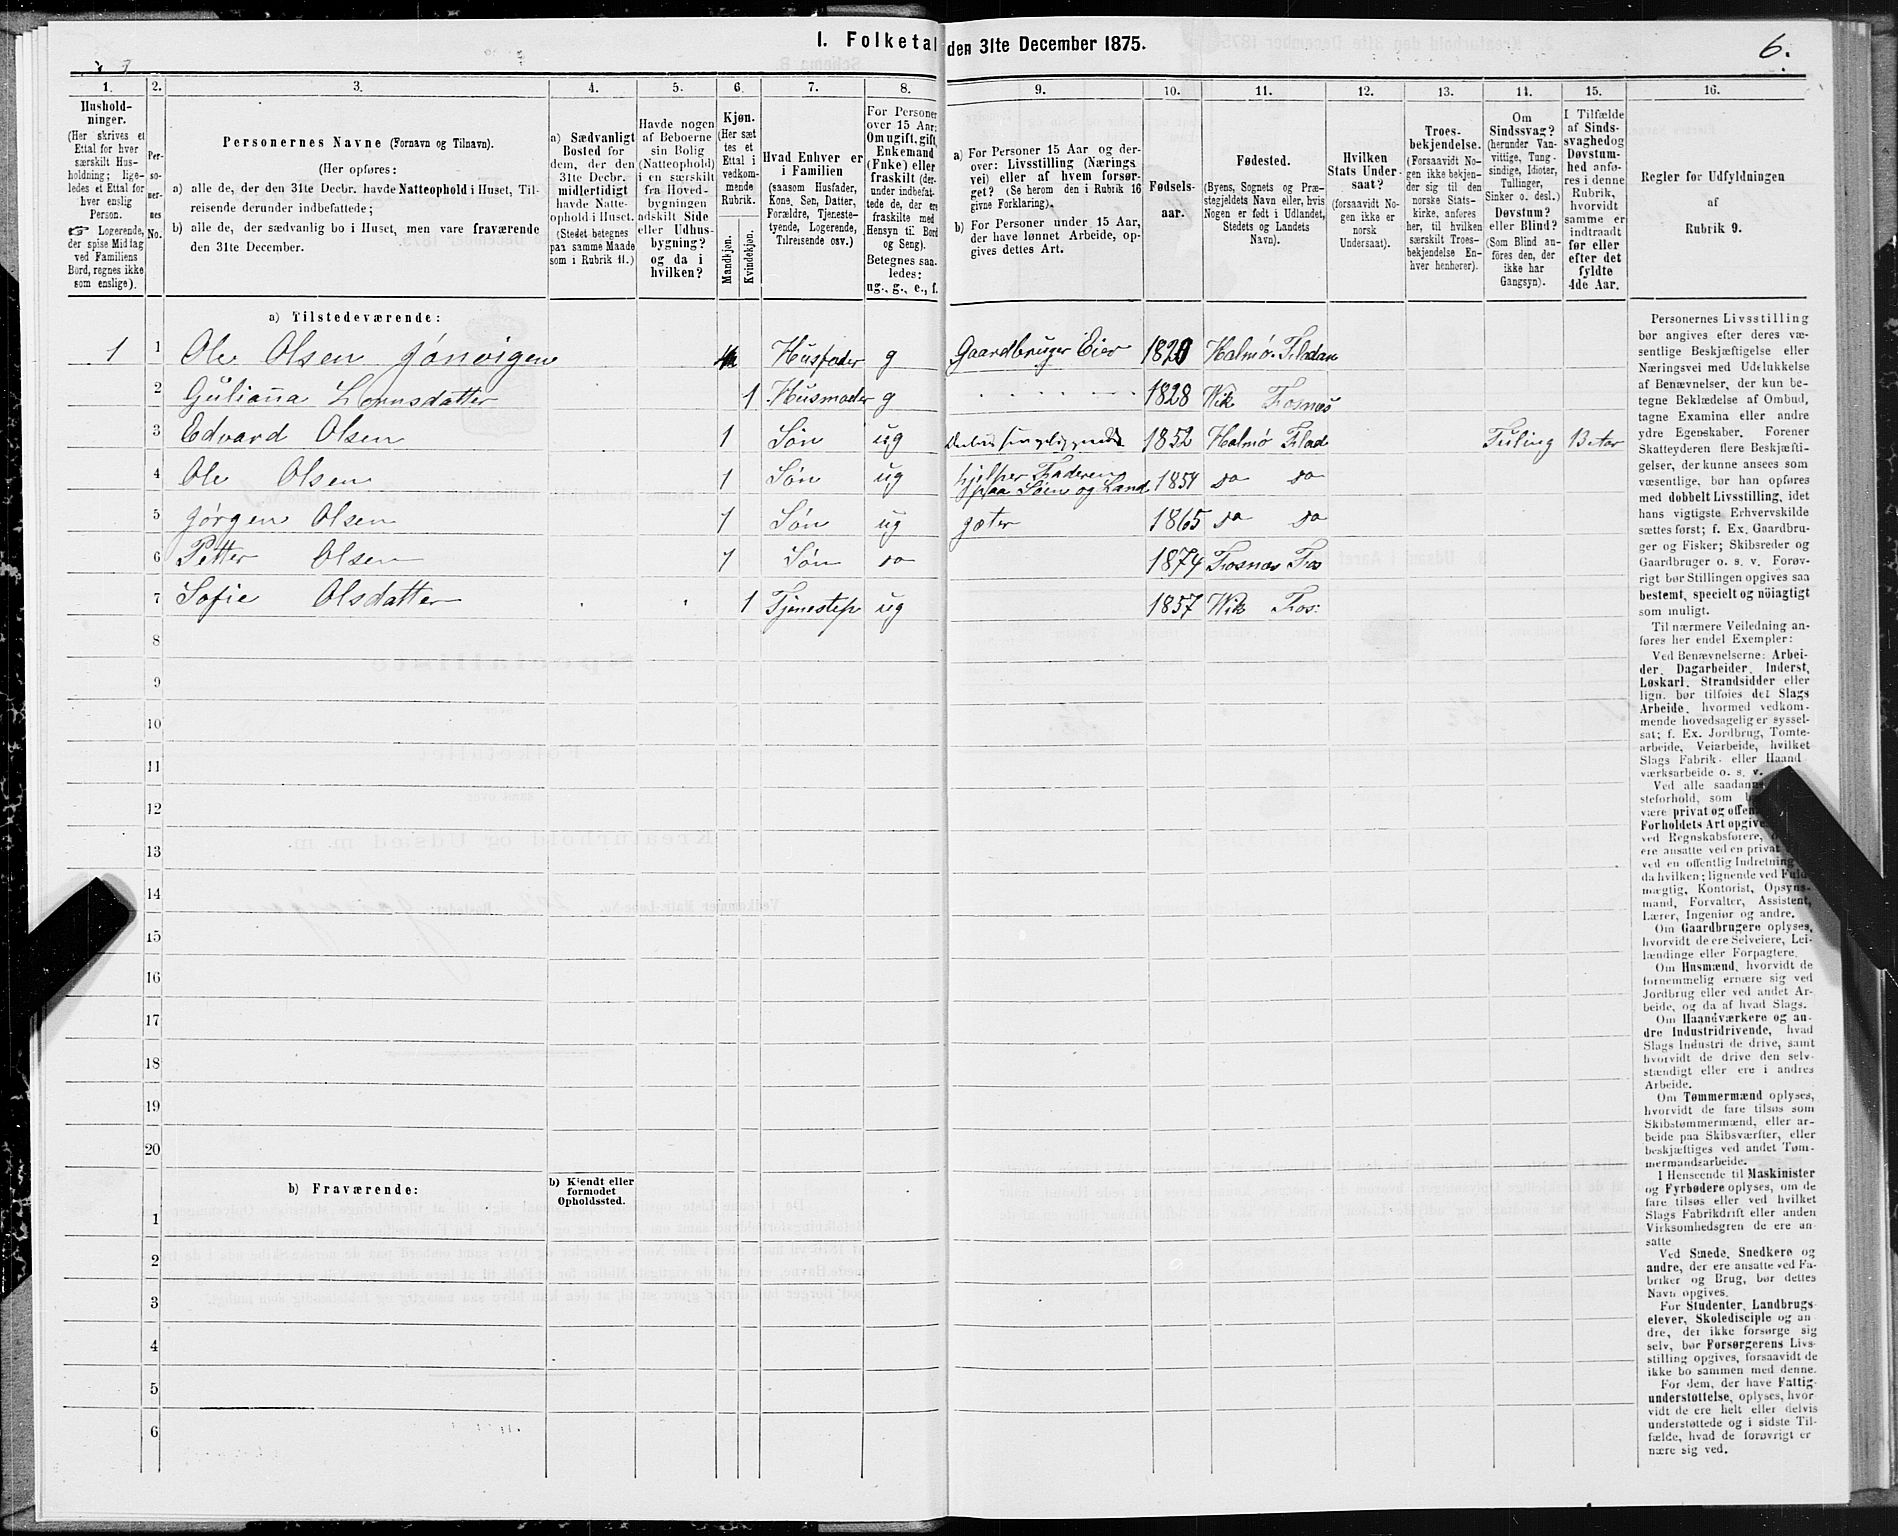 I. Folketal den 31te December 1875.
6.
1. 2. 3. 4. 5. 6. 7. 8. 9. 10. 11. 12. 13. 14. 15. 16.
Hushold-
ninger.
(Her skrives et
Ettal for hver
særskilt Hus-
holdning; lige-
ledes et Ettal for
hver enslig
Person.
☞ Logerende,
der spise Middag
ved Familiens
Bord, regnes ikke
som enslige).
Per-
so-
ner-
nes
No.
Personernes Navne (Fornavn og Tilnavn).
(Her opføres:
a) alle de, der den 31te Decbr. havde Natteophold i Huset, Til-
reisende derunder indbefattede;
b) alle de, der sædvanlig bo i Huset, men vare fraværende
den 31te December.
a) Sædvanligt
Bosted for
dem, der den
31te Decbr.
midlertidigt
havde Natte-
ophold i Huset.
(Stedet betegnes
paa samme Maade
som i Rubrik 11.)
Havde nogen
af Beboerne
sin Bolig
(Natteophold)
i en særskilt
fra Hoved-
bygningen
adskilt Side
eller Udhus-
bygning?
og da i
hvilken?
Kjøn.
(Her sæt
tes et
Ettal i
vedkom-
mende
Rubrik.
Mandkjøn.
Kvindekjøn.
Hvad Enhver er
i Familien
(saasom Husfader,
Kone, Søn, Datter,
Forældre, Tjeneste-
tyende, Logerende,
Tilreisende osv.)
For Personer
over 15 Aar:
Om ugift, gift,
Enkemand
(Enke) eller
fraskilt (der-
under indbefat-
tede de, der ere
fraskilte med
Hensyn til Bord
og Seng).
Betegnes saa-
ledes:
ug., g., e., f.
a) For Personer 15 Aar og der-
over: Livsstilling (Nærings
vei) eller af hvem forsør-
get? (Se herom den i Rubrik 16
givne Forklaring).
b) For Personer under 15 Aar,
der have lønnet Arbeide, op-
gives dettes Art.
Fødsels-
aar.
Fødested.
(Byens, Sognets og Præ-
stegjeldets Navn eller, hvis
Nogen er født i Udlandet,
Stedets og Landets
Navn).
Hvilken
Stats Under-
saat?
(forsaavidt No-
gen ikke er
norsk
Undersaat).
Troes-
bekjendelse.
(Forsaavidt No-
gen ikke bekjen-
der sig til den
norske Stats-
kirke, anføres
her, til hvilken
særskilt Troes-
bekjendelse En-
hver henhører).
Om
Sindssvag?
(herunder Van-
vittige, Tung-
sindige, Idioter,
Tullinger,
Sinker o. desl.)
Døvstum?
eller Blind?
(Som Blind an-
føres den, der
ikke har
Gangsyn).
I Tilfælde
af Sinds-
svaghed og
Døvstum-
hed anfø-
res i denne
Rubrik,
hvorvidt
samme er
indtraadt
før eller
efter det
fyldte
4de Aar.
Regler for Udfyldningen
af
Rubrik 9.
a) Tilstedeværende:
1 1 Ole Olsen Jønvigen Husfader g Gaardbruger Eier 1820 Halmø. Fladan
2 Guliana 1 Husmoder g 1828 Wik Fosnæs
3 Edvard Olsen 1 Søn ug 1852 Halmø Flad Tuling
4 Ole Olsen 1 Søn ug hjelper Faderen paa Søen og Land 1854 do do
5 Jørgen Olsen 1 Søn ug gæter 1865 do do
6 Petter Olsen 1 Søn do 1874 Fosnæs Fos
7 Sofie Olsdatter 1 Tjenestep ug 1857 Wik Fos:
8
9
10
11
12
13
14
15
16
17
18
19
20
b) Fraværende:
b) Kjendt eller
formodet
Opholdssted.
1
2
3
4
5
6
Personernes Livsstilling
bør angives efter deres væ-
sentlige Beskjæftigelse eller
Næringsvei med Udelukkelse
af Benævnelser, der kun be-
tegne Beklædelse af Ombud,
tagne Examina eller andre
ydre Egenskaber. Forener
Skatteyderen flere Beskjæfti-
gelser, der kunne ansees som
væsentlige, bør han opføres
med dobbelt Livsstilling, idet
hans vigtigste Erhvervskilde
sættes først; f. Ex. Gaardbru-
ger og Fisker; Skibsreder og
Gaardbruger o. s. v. Forøv-
rigt bør Stillingen opgives saa
bestemt, specielt og nöiagtigt
som muligt.
Til nærmere Veiledning an-
føres her endel Exempler:
Ved Benævnelserne: Arbei-
der, Dagarbeider, Inderst,
Løskarl, Strandsidder eller
lign. bør tilføies det Slags
Arbeide, hvormed vedkom-
mende hovedsagelig er syssel-
sat; f. Ex. Jordbrug, Tomte-
arbeide, Veiarbeide, hvilket
Slags Fabrik- eller Haand
værksarbeide o. s. v.
Ved alle saadanne
steforhold, som
være privat og offen
Forholdets Art opgive
ved Regnskabsførere,
ere ansatte ved en privat
ved en offentlig Indretning
da hvilken; lignende ved Fuld
mægtig, Kontorist, Opsyns-
mand, Forvalter, Assistent,
Lærer, Ingeniør og andre.
Om Gaardbrugere oplyses,
hvorvidt de ere Selveiere, Lei-
lændinge eller Forpagtere.
Om Husmænd, hvorvidt de
fornemmelig ernære sig ved
Jordbrug eller ved andet Ar-
beide, og da af hvad Slags.
Om Haandværkere og an-
dre Industridrivende, hvad
Slags Industri de drive, samt
hvorvidt de drive den selv-
stændigt eller ere i andres
Arbeide.
Om Tømmermænd oplyses,
hvorvidt de fare tilsøs som
Skibstømmermænd, eller ar-
beide paa Skibsværfter, eller
beskjæftiges ved andet Tøm-
mermandsarbeide.
I Henseende til Maskinister
og Fyrbødere oplyses, om de
fare tilsøs eller ved hvilket
Slags Fabrikdrift eller anden
Virksomhedsgren de ere an-
satte
Ved Smede, Snedkere og
andre, der ere ansatte ved Fa-
briker og Brug, bør dettes
Navn opgives.
For Studenter, Landbrugs
elever, Skoledisciple og an-
dre, der ikke forsørge sig
selv, bør Forsørgerens Livs-
stilling opgives, forsaavidt de
ikke bo sammen med denne.
For dem, der have Fattig
understøttelse, oplyses, hvor-
vidt de ere helt eller delvis
understøttede og i sidste Til-
fælde, hvad de forøvrigt er
nære sig ved.